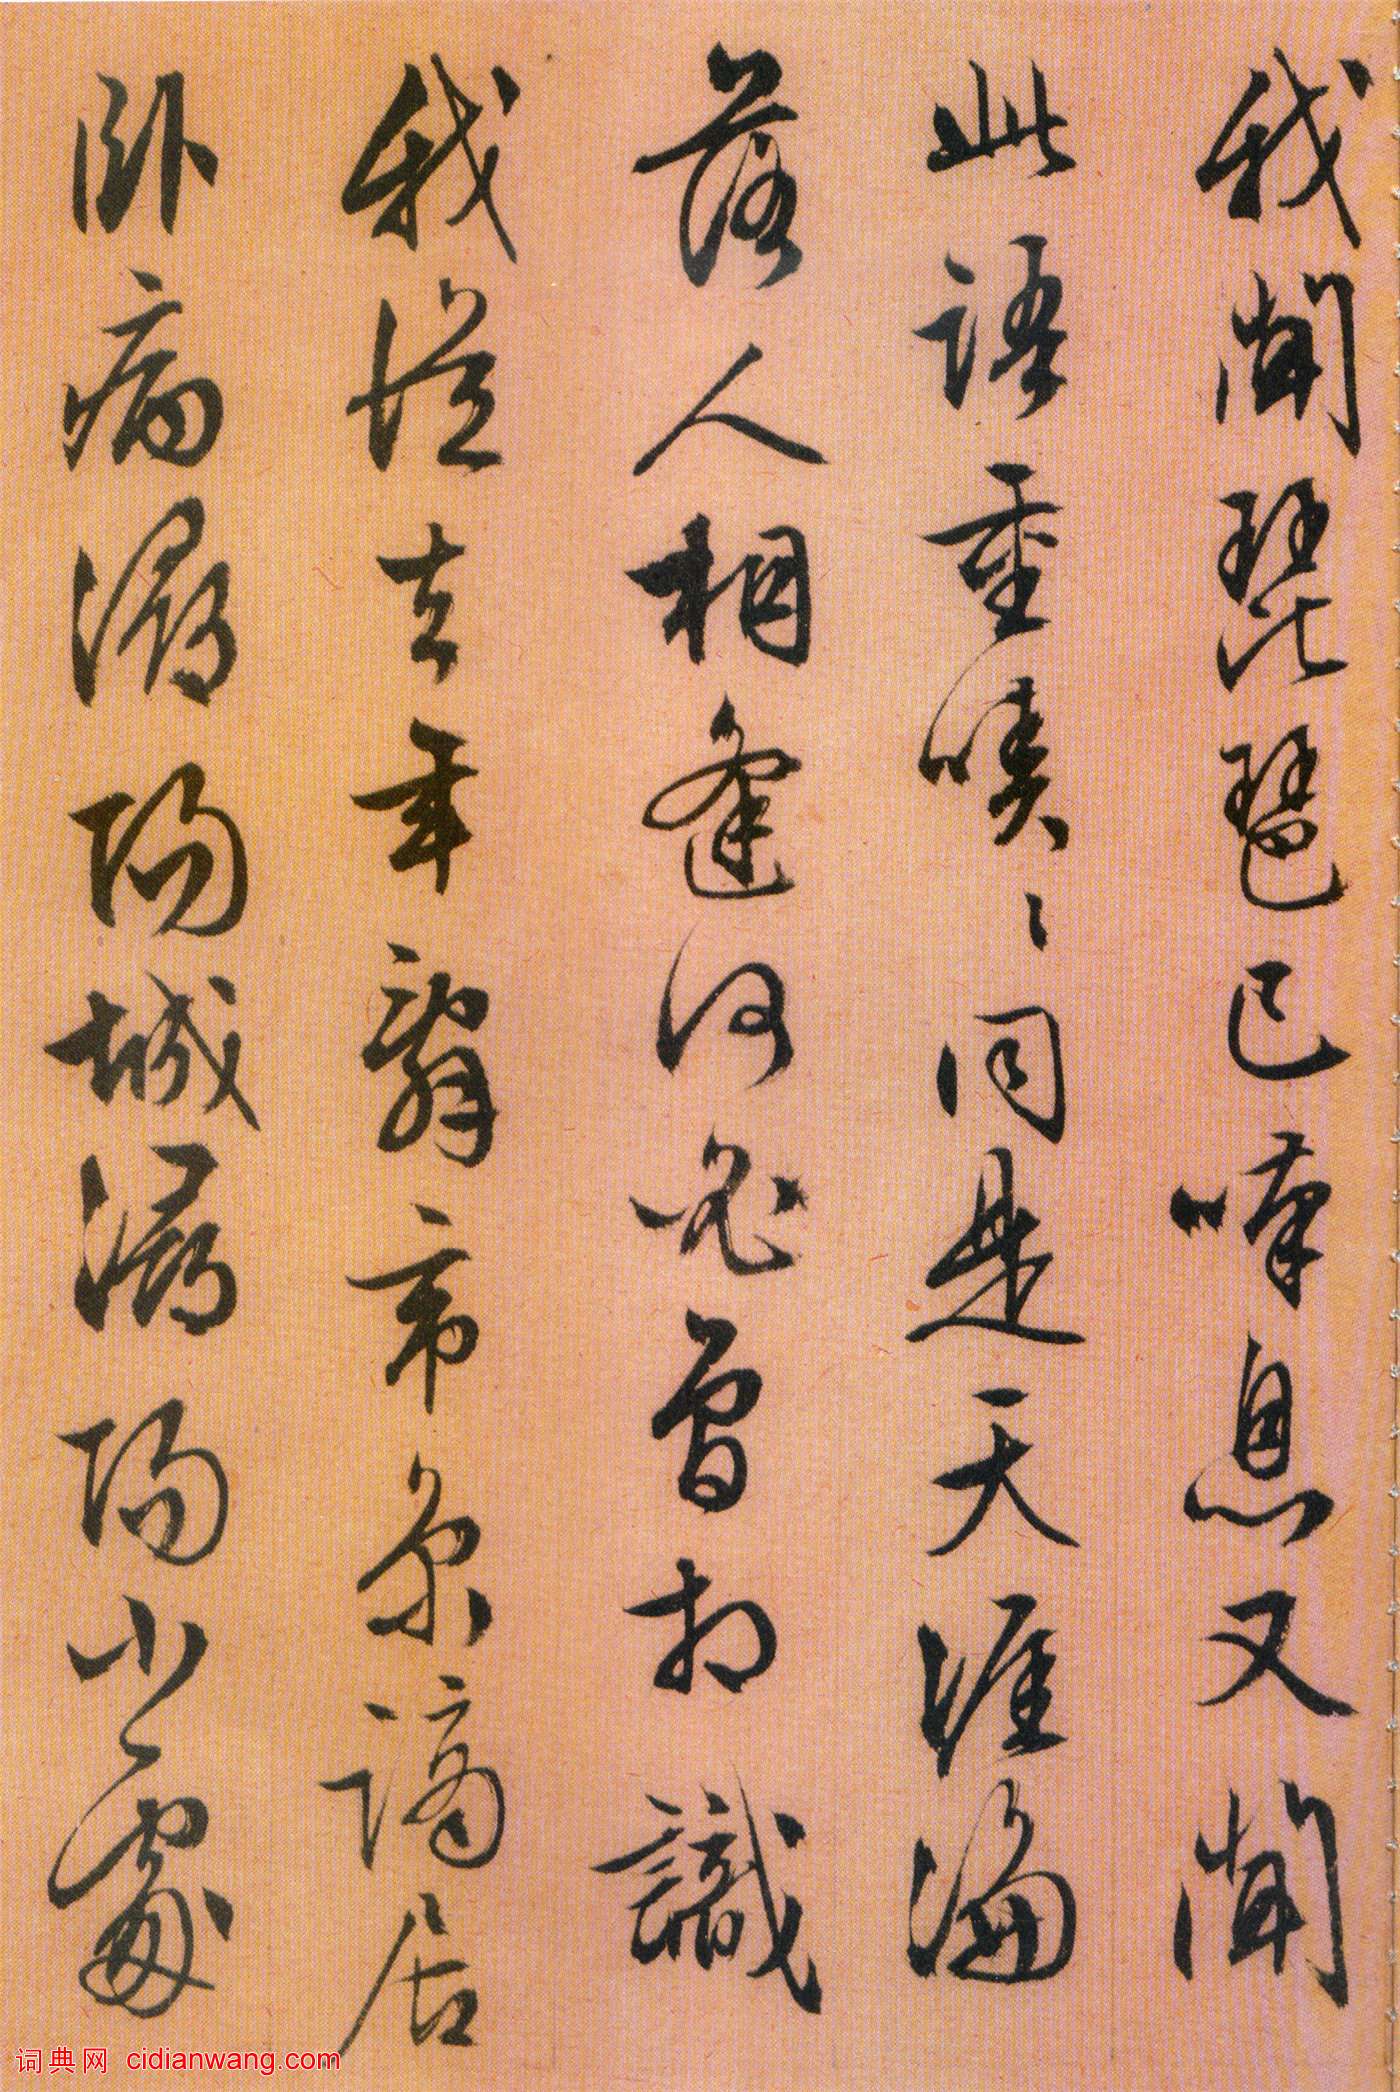 我聞琵琶已嘆息又聞
此語重嘖〻同是天涯淪
落人相逢何必曾相識
我從去年辭帝京謫居
卧病潯陽城潯陽小處
词典网 cidianwang.com